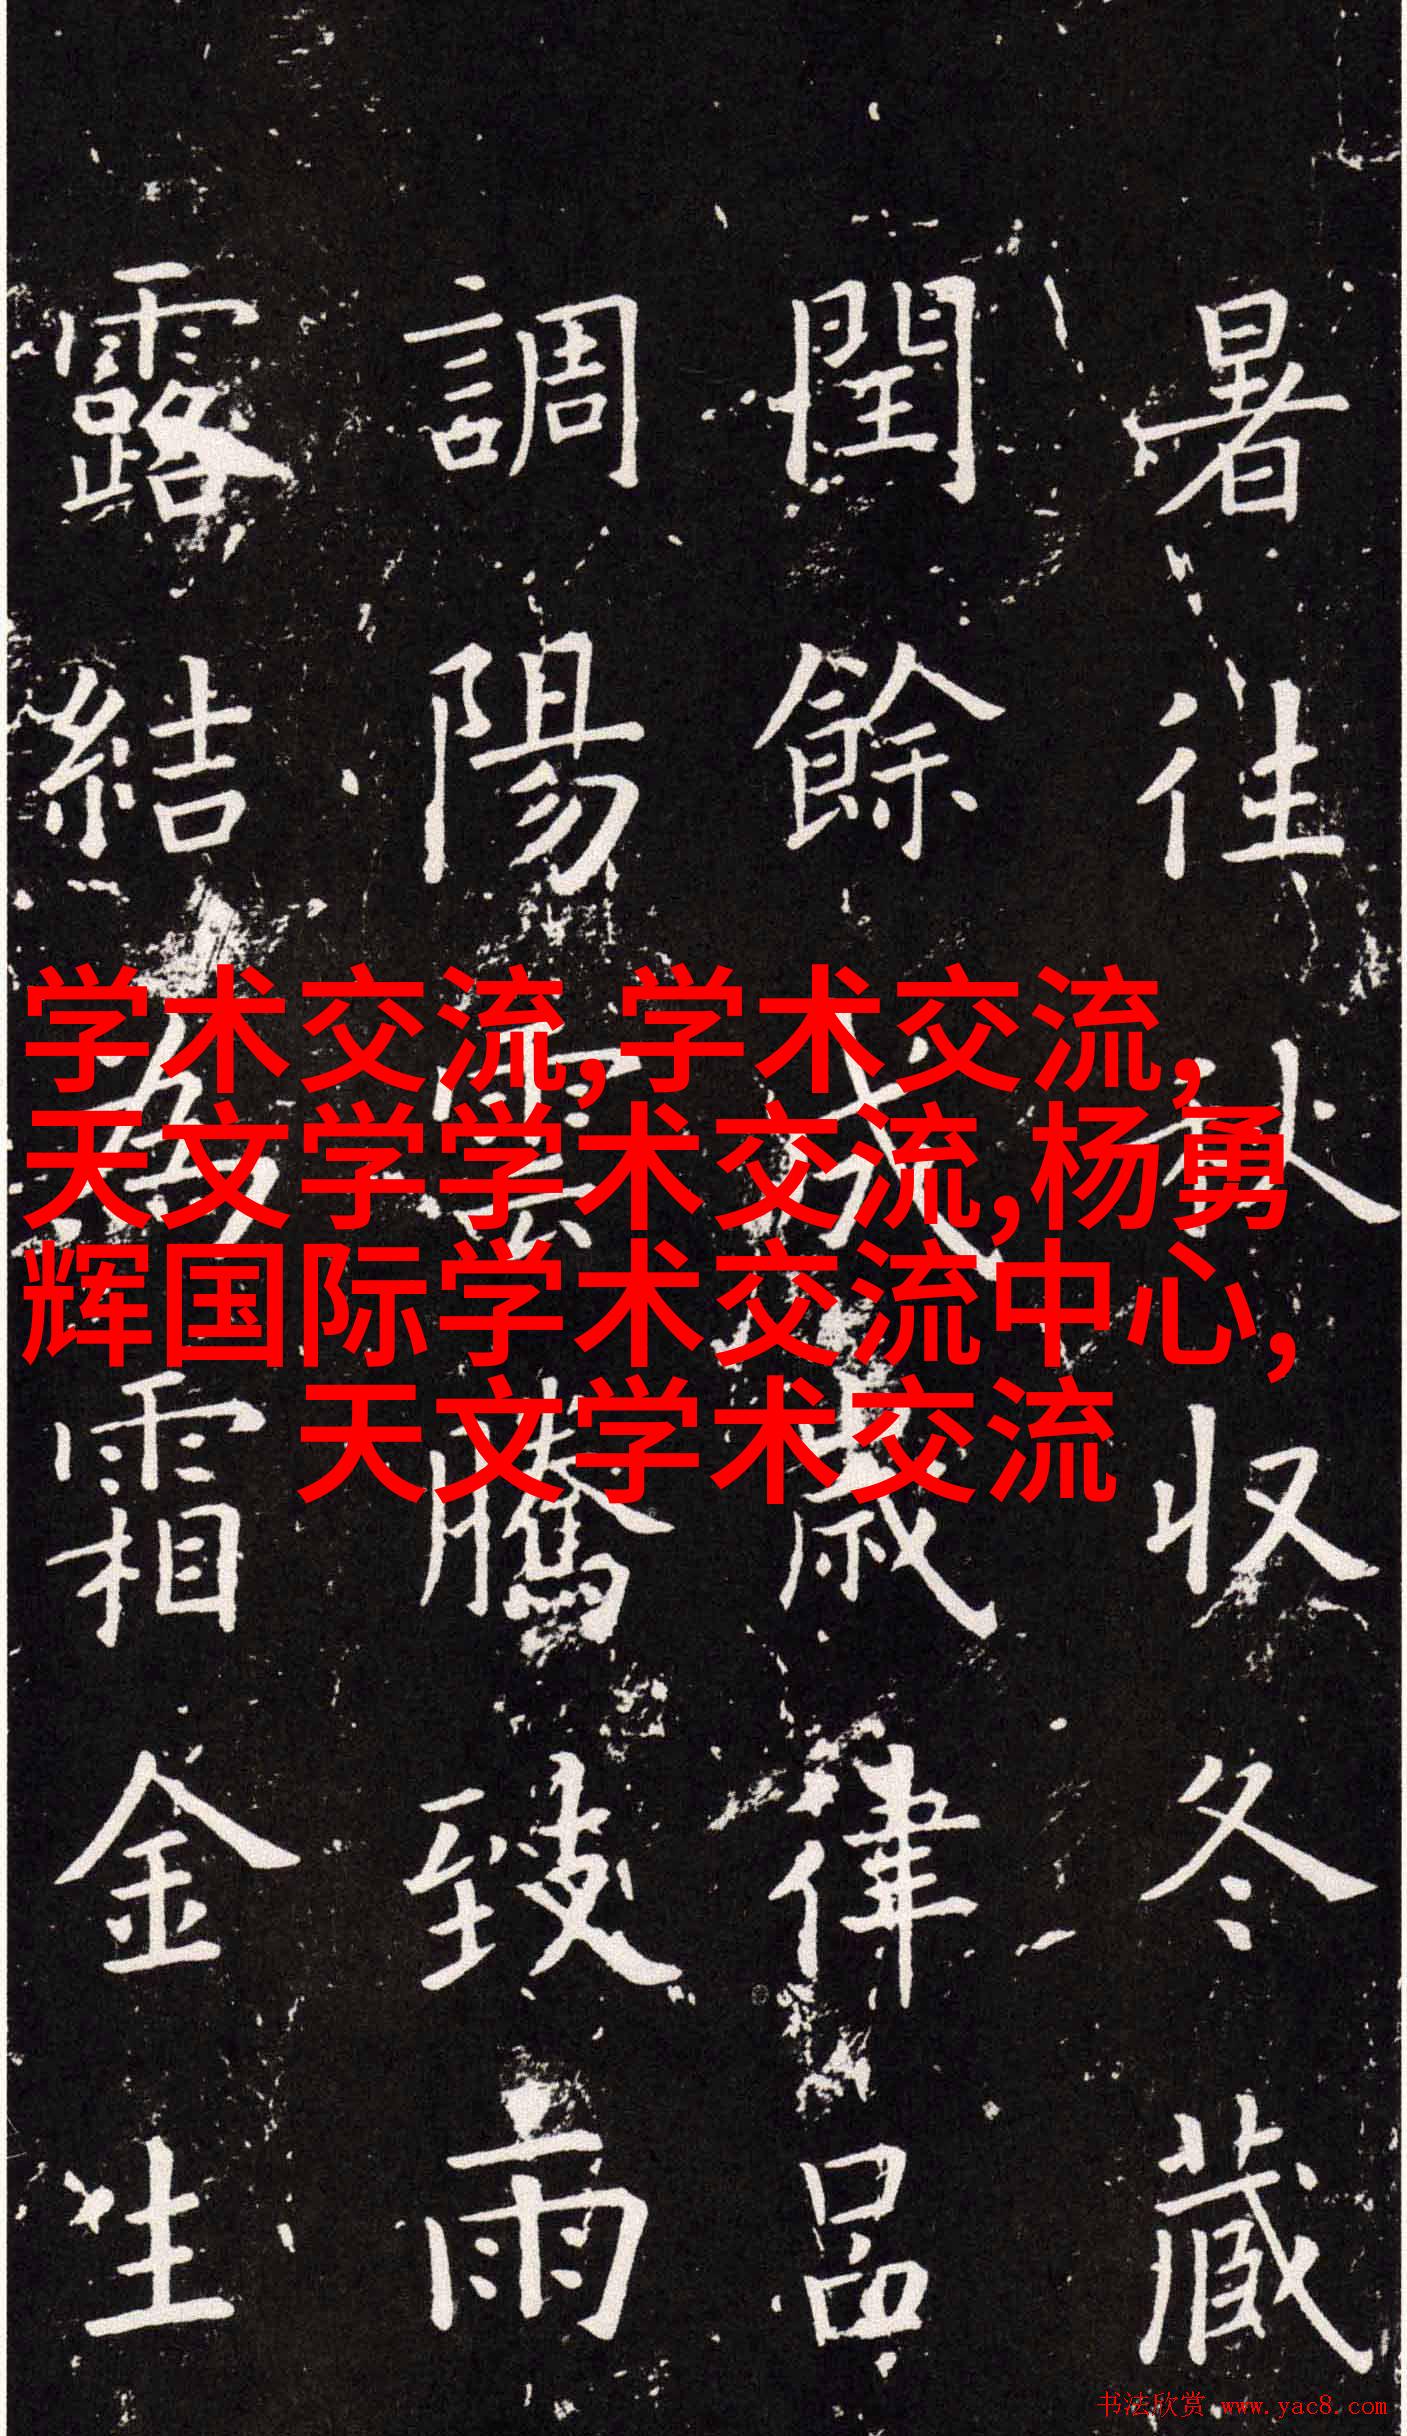 暑往秋収冬藏
閏餘成歲律吕
調陽雲騰致雨
露結為霜金生
学术交流,学术交流,
天文学学术交流,杨勇
辉国际学术交流中心,
天文学术交流
书法欣赏 www.yac8.com